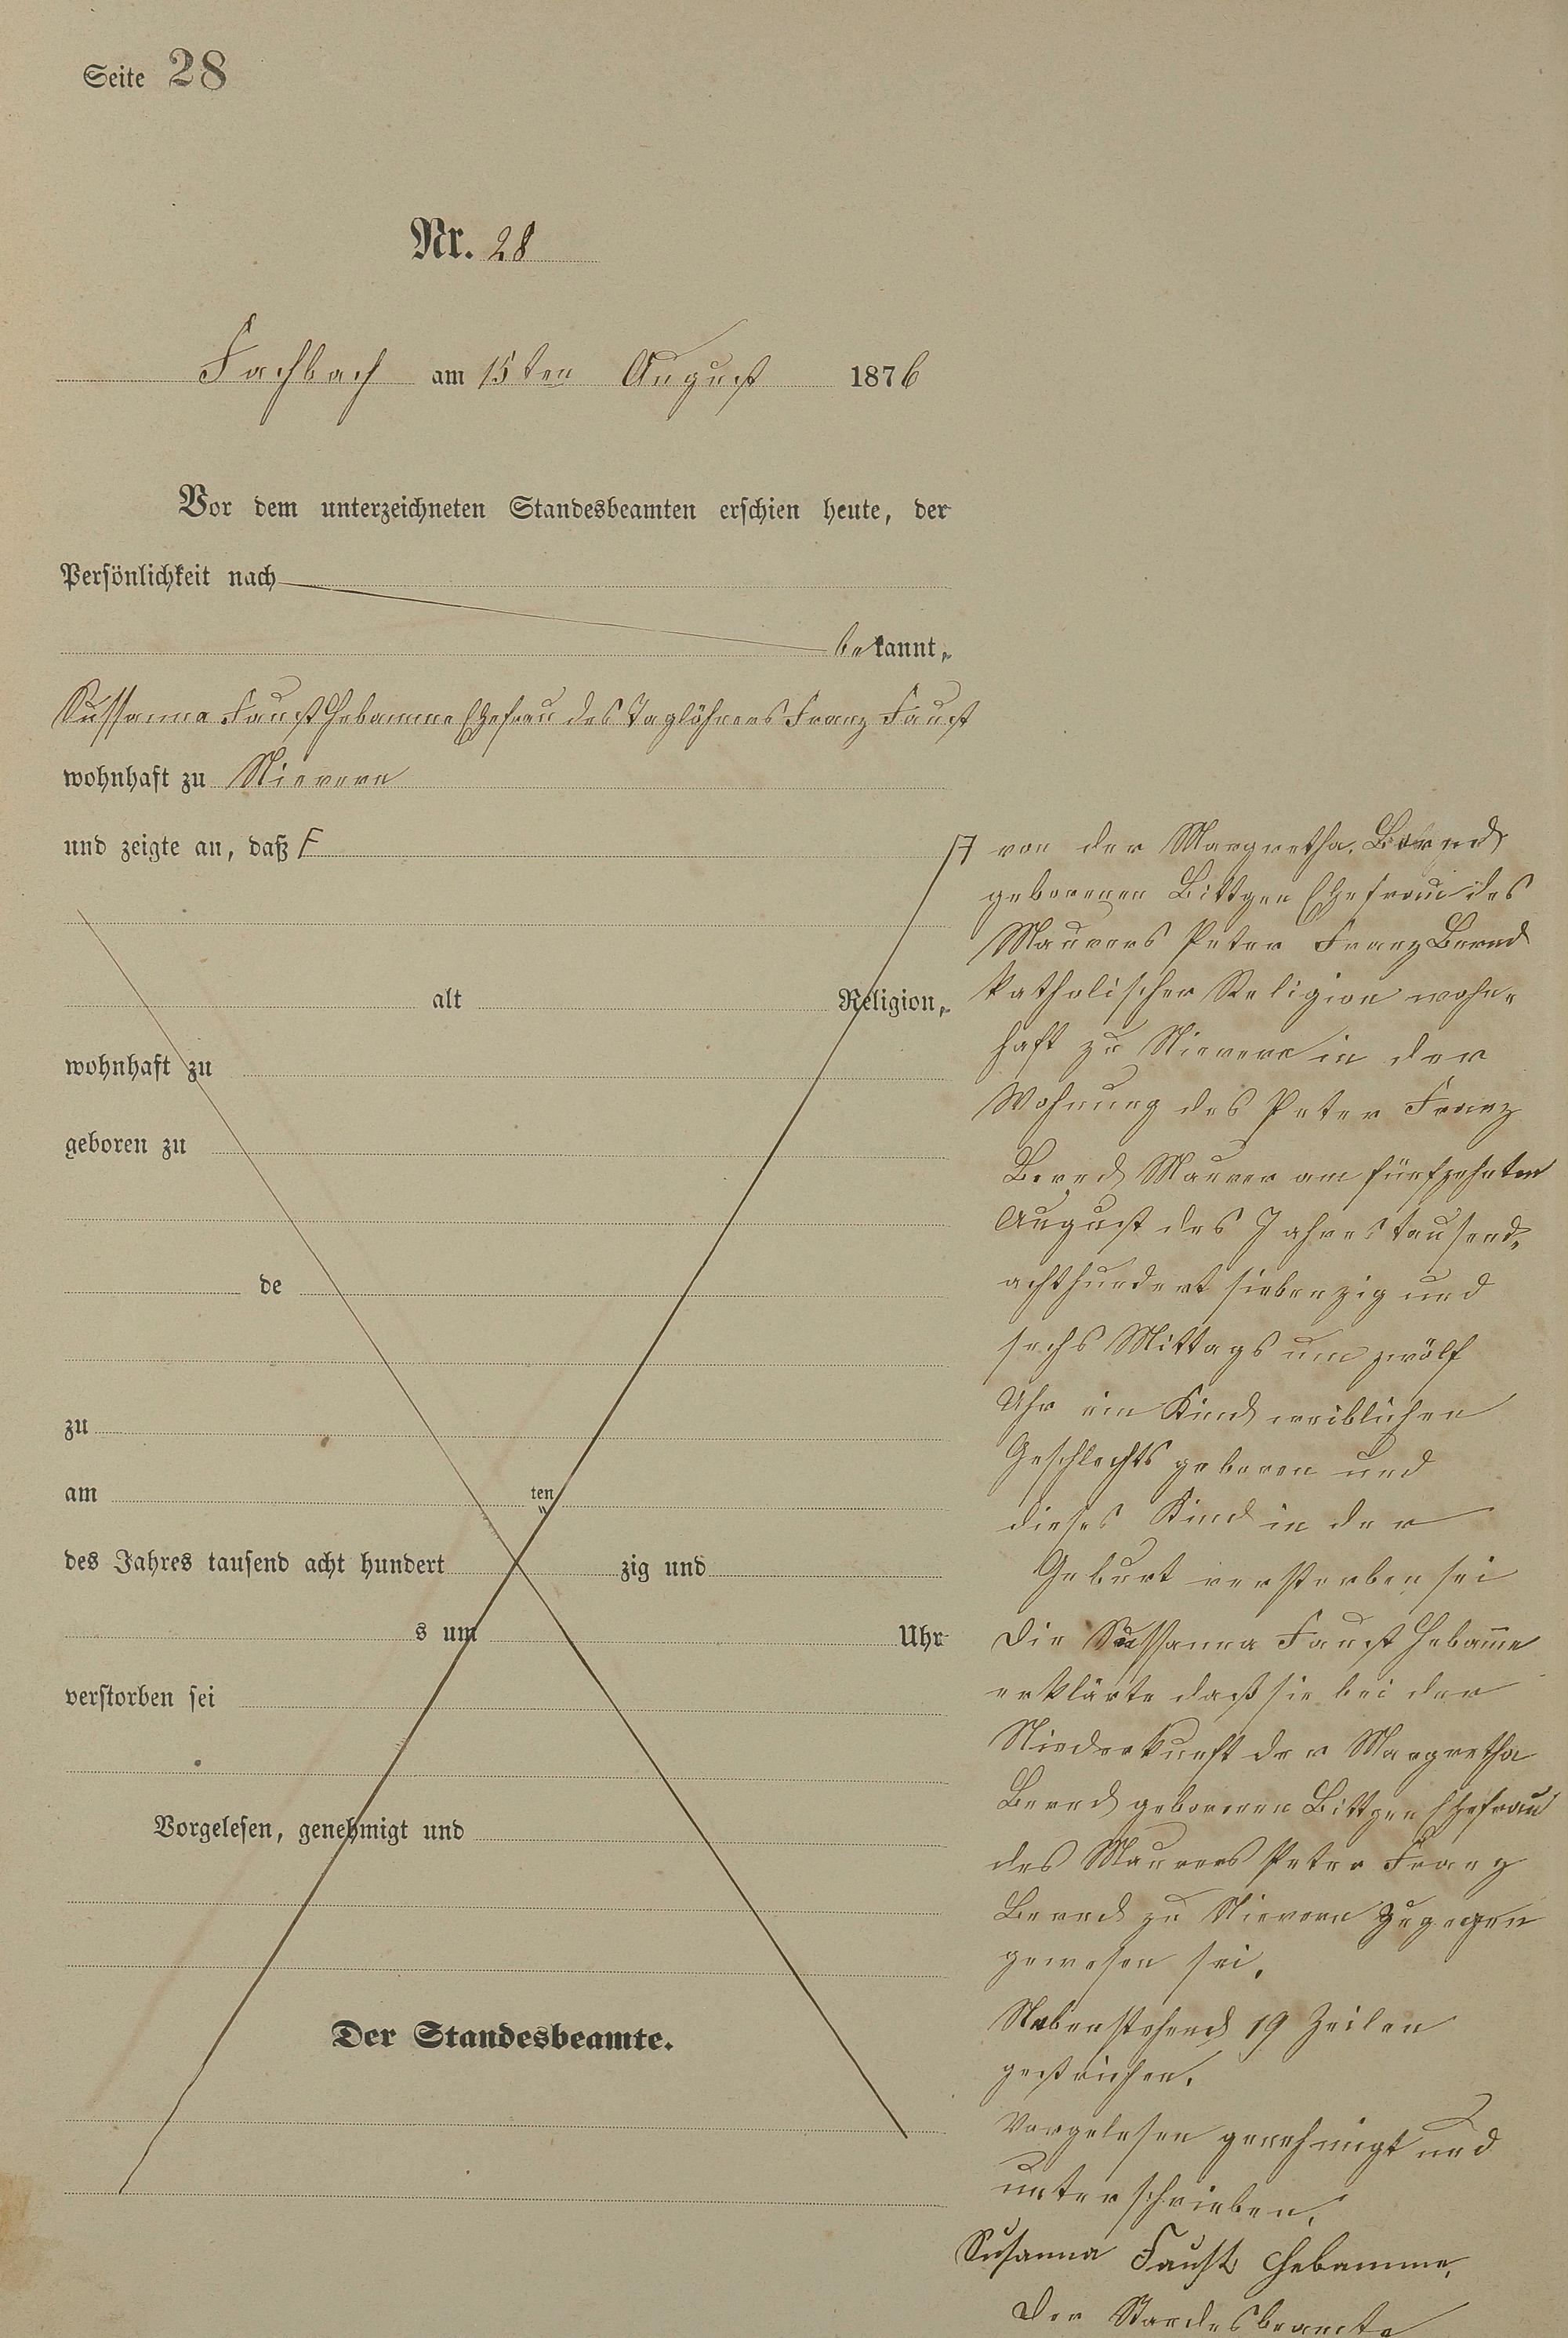 Seite 28
Nr. 28
Fachbach am 15ten August 1876
Vor dem unterzeichneten Standesbeamten erschien heute, der
Persönlichkeit nach
bekannt,
Sussanna Faust Hebamme Ehefrau des Taglöhners Franz Faust
wohnhaft zu Nievern
und zeigte an, daß F
alt Religion,
wohnhaft zu
geboren zu
de
zu
am ten
des Jahres tausend acht hundert zig und
s um Uhr
verstorben sei
Vorgelesen, genehmigt und
Der Standesbeamte.
F von der Margretha Bernd
geborenen Bittgen Ehefrau des
Maurers Peter Franz Bernd
katholischer Religion wohn-
haft zu Nievern in der
Wohnung des Peter Franz
Bernd Maurer am fünfzehnten
August des Jahres tausend-
achthundert siebenzig und
sechs Mittags um zwölf
Uhr ein Kind weiblichen
Geschlechts geboren und
dieses Kind in der
Geburt verstorben sei
Die Sussanna Faust Hebamme
erklärte daß sie bei der
Niederkunft der Margretha
Bernd geborenen Bittgen Ehefrau
des Maurers Peter Franz
Bernd zu Nievern zugegen
gewesen sei.
Nebenstehend 19 Zeilen
gestrichen.
Vorgelesen genehmigt und
unterschrieben.
Susanna Faust Hebamme,
Der Standesbeamte